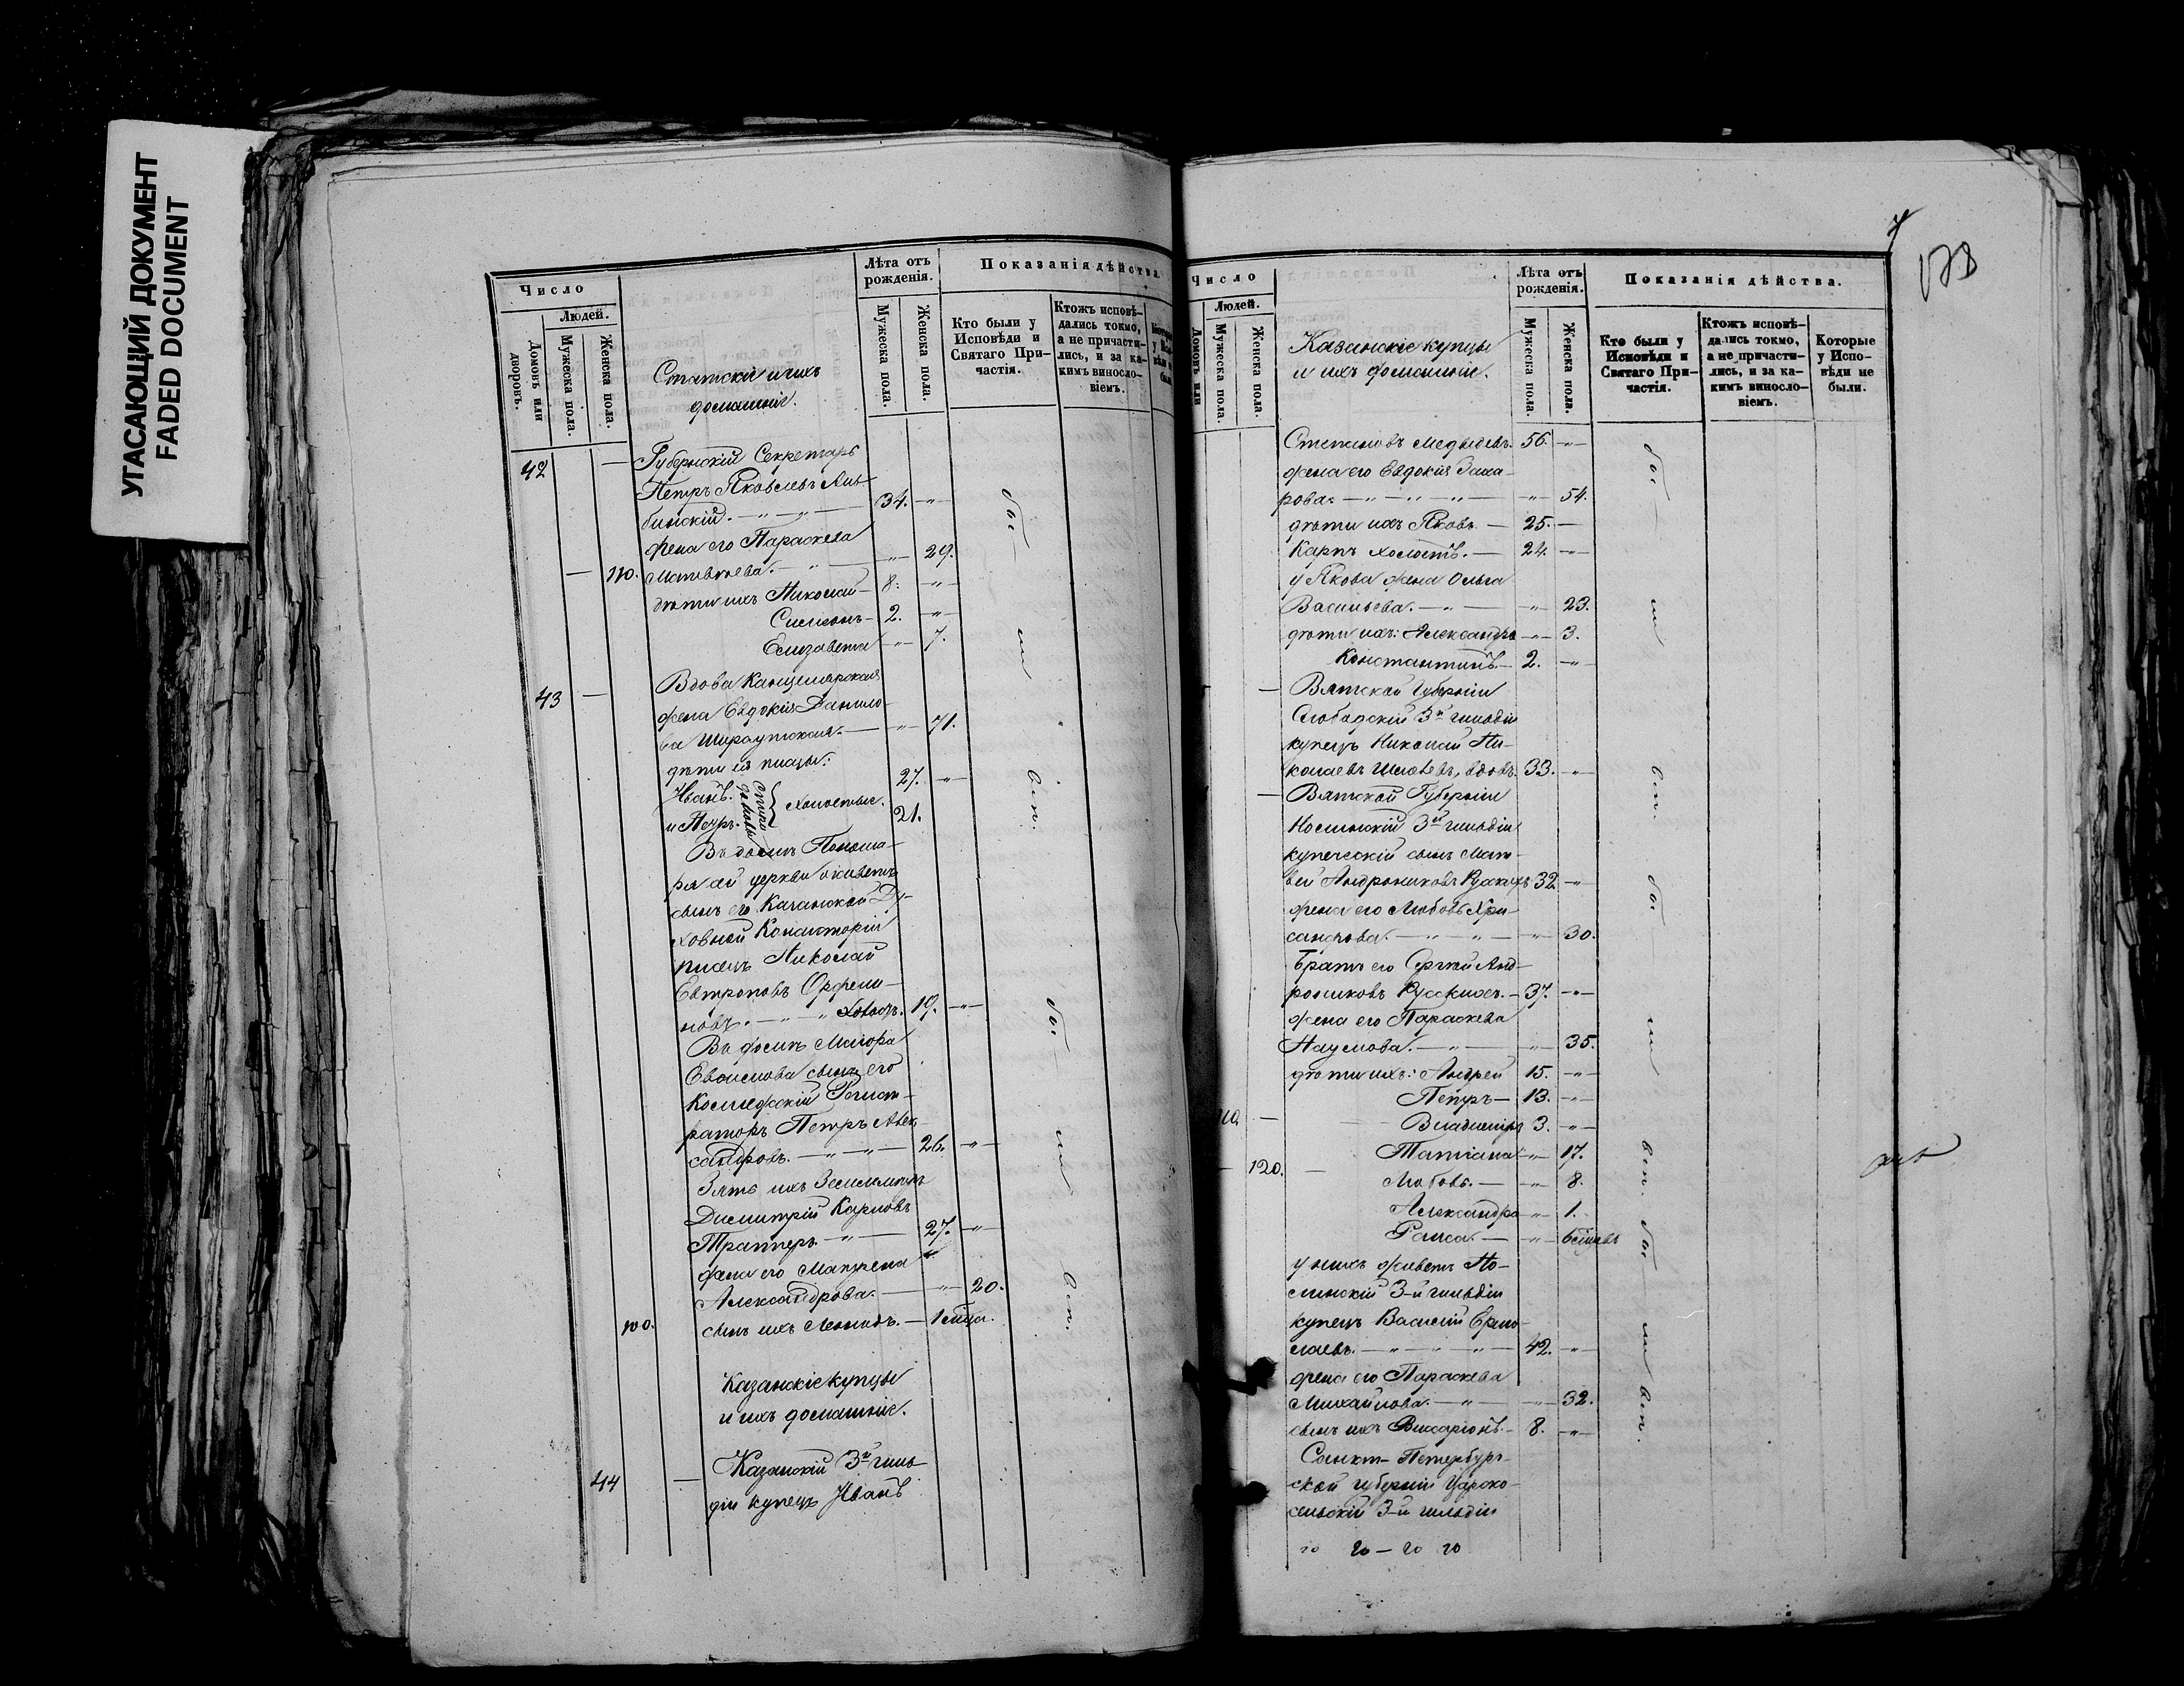 УГАСАЮЩИЙ ДОКУМЕНТ
FADED DOCUMENT
Число
Людей.
Домовъ или дворовъ.
Мужеска пола.
Женска пола.
Статскіе и ихъ
домашніе.
Лѣта отъ рожденія.
Мужеска пола.
Женска пола.
Показанія дѣйства.
Кто были у Исповѣди и Святаго Причастія.
Ктожъ исповѣдались токмо, а не причастились, и за какимъ винословіемъ.
42 — Губернскій Секретарь
Петръ Яковлевъ
бинскій. —„—„— 34. —„—
жена его Параскева
— 110. Матвѣева. —„— —„— 29.
дѣти ихъ Николай — 8. —„—
Симеонъ — 2. —„—
Елизавета —„— 7.
43 — Вдова Канцелярская
жена Евдокія Данило-
ва —„— 71.
дѣти ея писцы:
Иванъ. 27. —„—
и Петръ. холостые. 21.
Въ домѣ Понома-
ря сей церкви живетъ
сынъ его Казанской Ду-
ховной Консисторіи
писецъ Николай
Евтроповъ
новъ. —„—„ холостъ. 19. —„—
Въ домѣ Маіора
сынъ его
Коллежскій Регист-
раторъ Петръ Алек-
сандровъ. —„—„— 26. —„—
Зять ихъ Землемѣръ
Димитрій Карловъ
Траттеръ —„— 27. —„—
жена его
Александрова. —„— 20.
100. сынъ ихъ Леонидъ. — 1 мѣсяца.
Казанскіе купцы
и ихъ домашніе.
44 — Казанскій 3й гиль-
діи купецъ Иванъ
бы
ли
вси.
бы
ли
вси.
7
178
Число
Людей.
Домовъ или
Мужеска пола.
Женска пола.
Казанскіе купцы
и ихъ домашніе.
Лѣта отъ рожденія.
Мужеска пола.
Женска пола.
Показанія дѣйства.
Кто были у Исповѣди и Святаго Причастія.
Ктожъ исповѣдались токмо, а не причастились, и за какимъ винословіемъ.
Которые у Исповѣди не были.
Степановъ Медвѣдевъ. 56. —„—
жена его Евдокія Заха-
рова. —„—„—„— —„— 54.
дѣти ихъ Яковъ. — 25. —
Карпъ холостъ. — 24. —„—
у Якова жена Ольга
Васильева. —„— —„— 23.
дѣти ихъ: Александра —„— 3.
Константинъ — 2. —„—
— Вятской Губерніи
Слободскій 3й гильдіи
купецъ Николай Ни-
колаевъ вдовъ. 33. —„—
— Вятской Губерніи
Нолинскій 3й гильдіи
купеческій сынъ Мат-
вей Андрониковъ Русскихъ 32. —„—
жена его Любовь Хри-
санфова. —„—„— —„— 30.
Братъ его Сергѣй Анд-
рониковъ Русскихъ. — 37. —„—
жена его Параскева
Наумова. —„— —„— 35.
дѣти ихъ: Андрей 15. —„—
Петръ — 13. —„—
110. — Владиміръ 3. —„—
— 120. — Татіана —„— 17.
Любовь. — —„— 8.
Александра —„— 1.
Раиса. — —„— 6 мѣсяцевъ
у нихъ живетъ Но-
линскій 3-й гильдіи
купецъ Василій Ермо-
лаевъ. —„—„—„— 42. —„—
жена его Параскева
Михайлова. —„— —„— 32.
сынъ ихъ Виссаріонъ. — 8. —„—
Санкт-Петербург-
ской губерніи Царско-
сельскій 3-й гильдіи
бы
ли
вси.
бы
ли
вси.
бы
ли
вси.